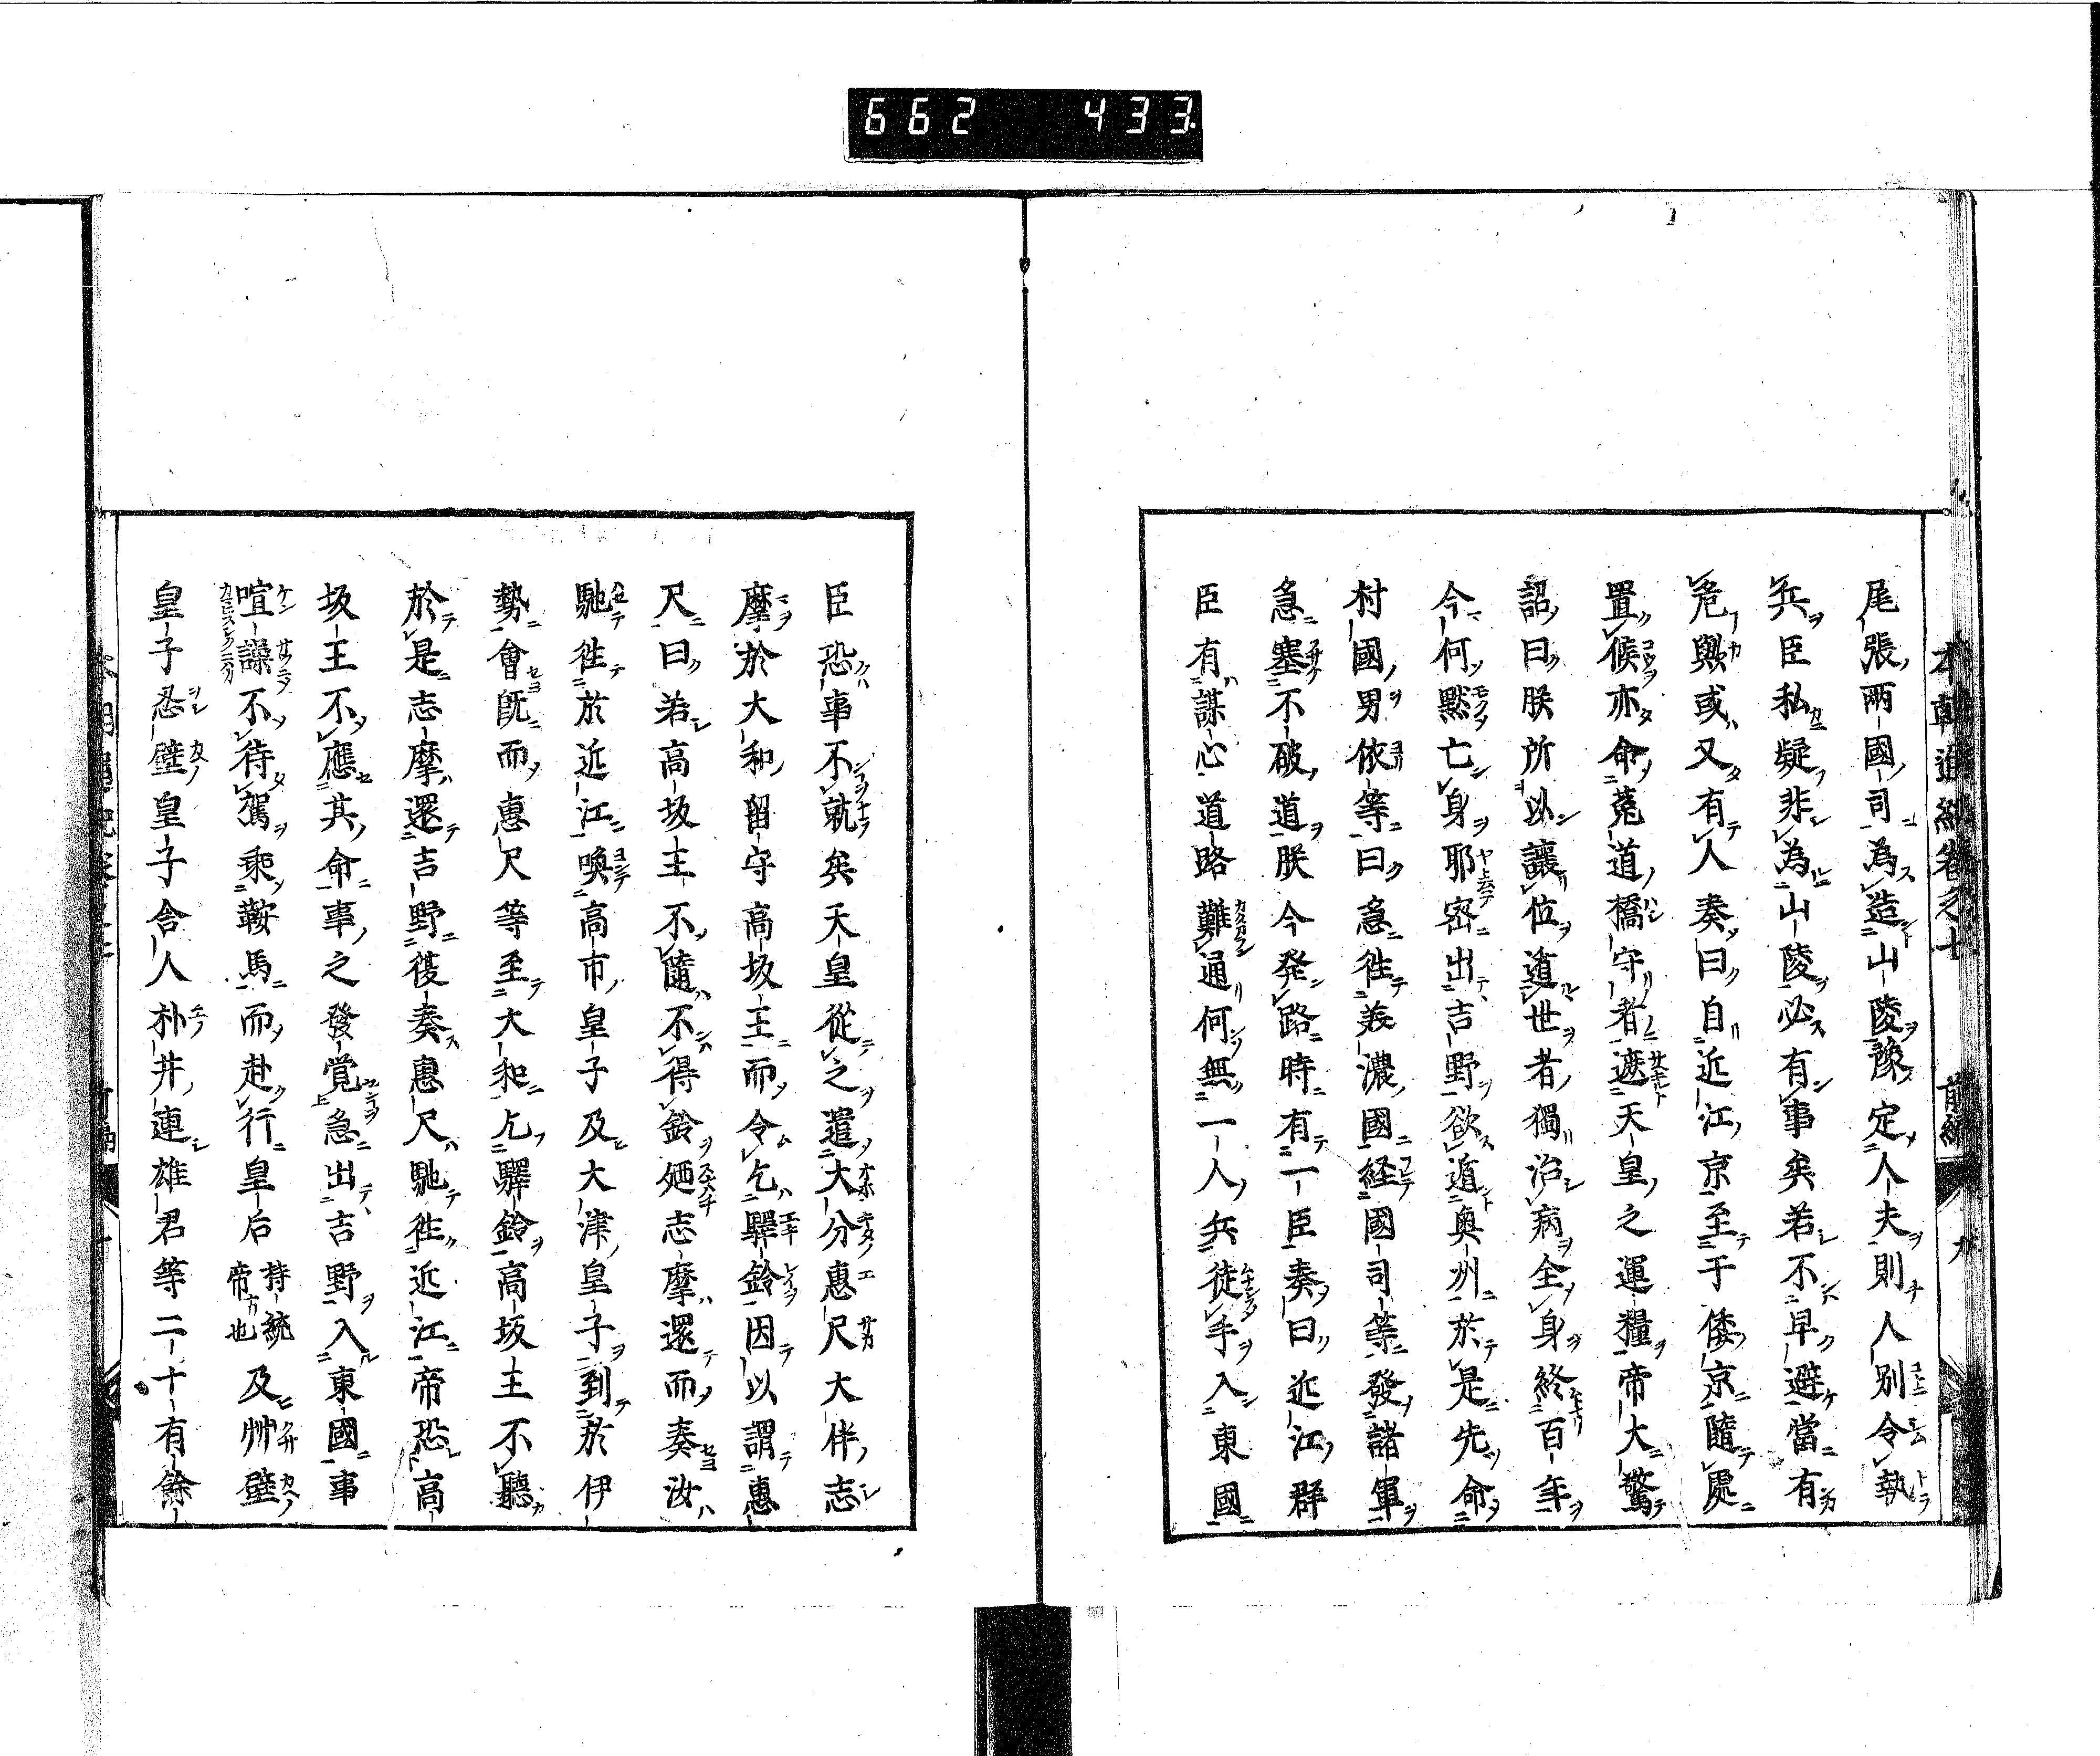 662 433
本朝通紀卷之十 前編 九
尾張兩國司為造山陵豫定人夫則人別令執
兵臣私疑非為山陵必有事矣若不早避當有
危歟或又有人奏曰自近江京至于倭京隨處
置候亦命菟道橋守者遮天皇之運糧帝大驚
詔曰朕所以讓位遁世者獨治病全身終百年
今何黙亡身耶密出吉野欲遁奥州於是先命
村國男依等曰急徃美濃國経國司等發諸軍
急塞不破道朕今発路時有一臣奏曰近江群
臣有謀心道路難通何無一人兵徒手入東國
臣恐事不就矣天皇從之遣大分惠尺大伴志
摩於大和留守高坂王而令乞驛鈴因以謂惠
尺曰若高坂王不隨不得鈴廼志摩還而奏汝
馳徃於近江喚高市皇子及大津皇子到於伊
勢會既而惠尺等至大和乞驛鈴高坂王不聽
於是志摩還吉野復奏惠尺馳徃近江帝恐高
坂王不應其命事之發覚急出吉野入東國事
喧譟不待駕乘鞍馬而赴行皇后持統帝也及艸壁
皇子忍壁皇子舎人朴井連雄君等二十有餘